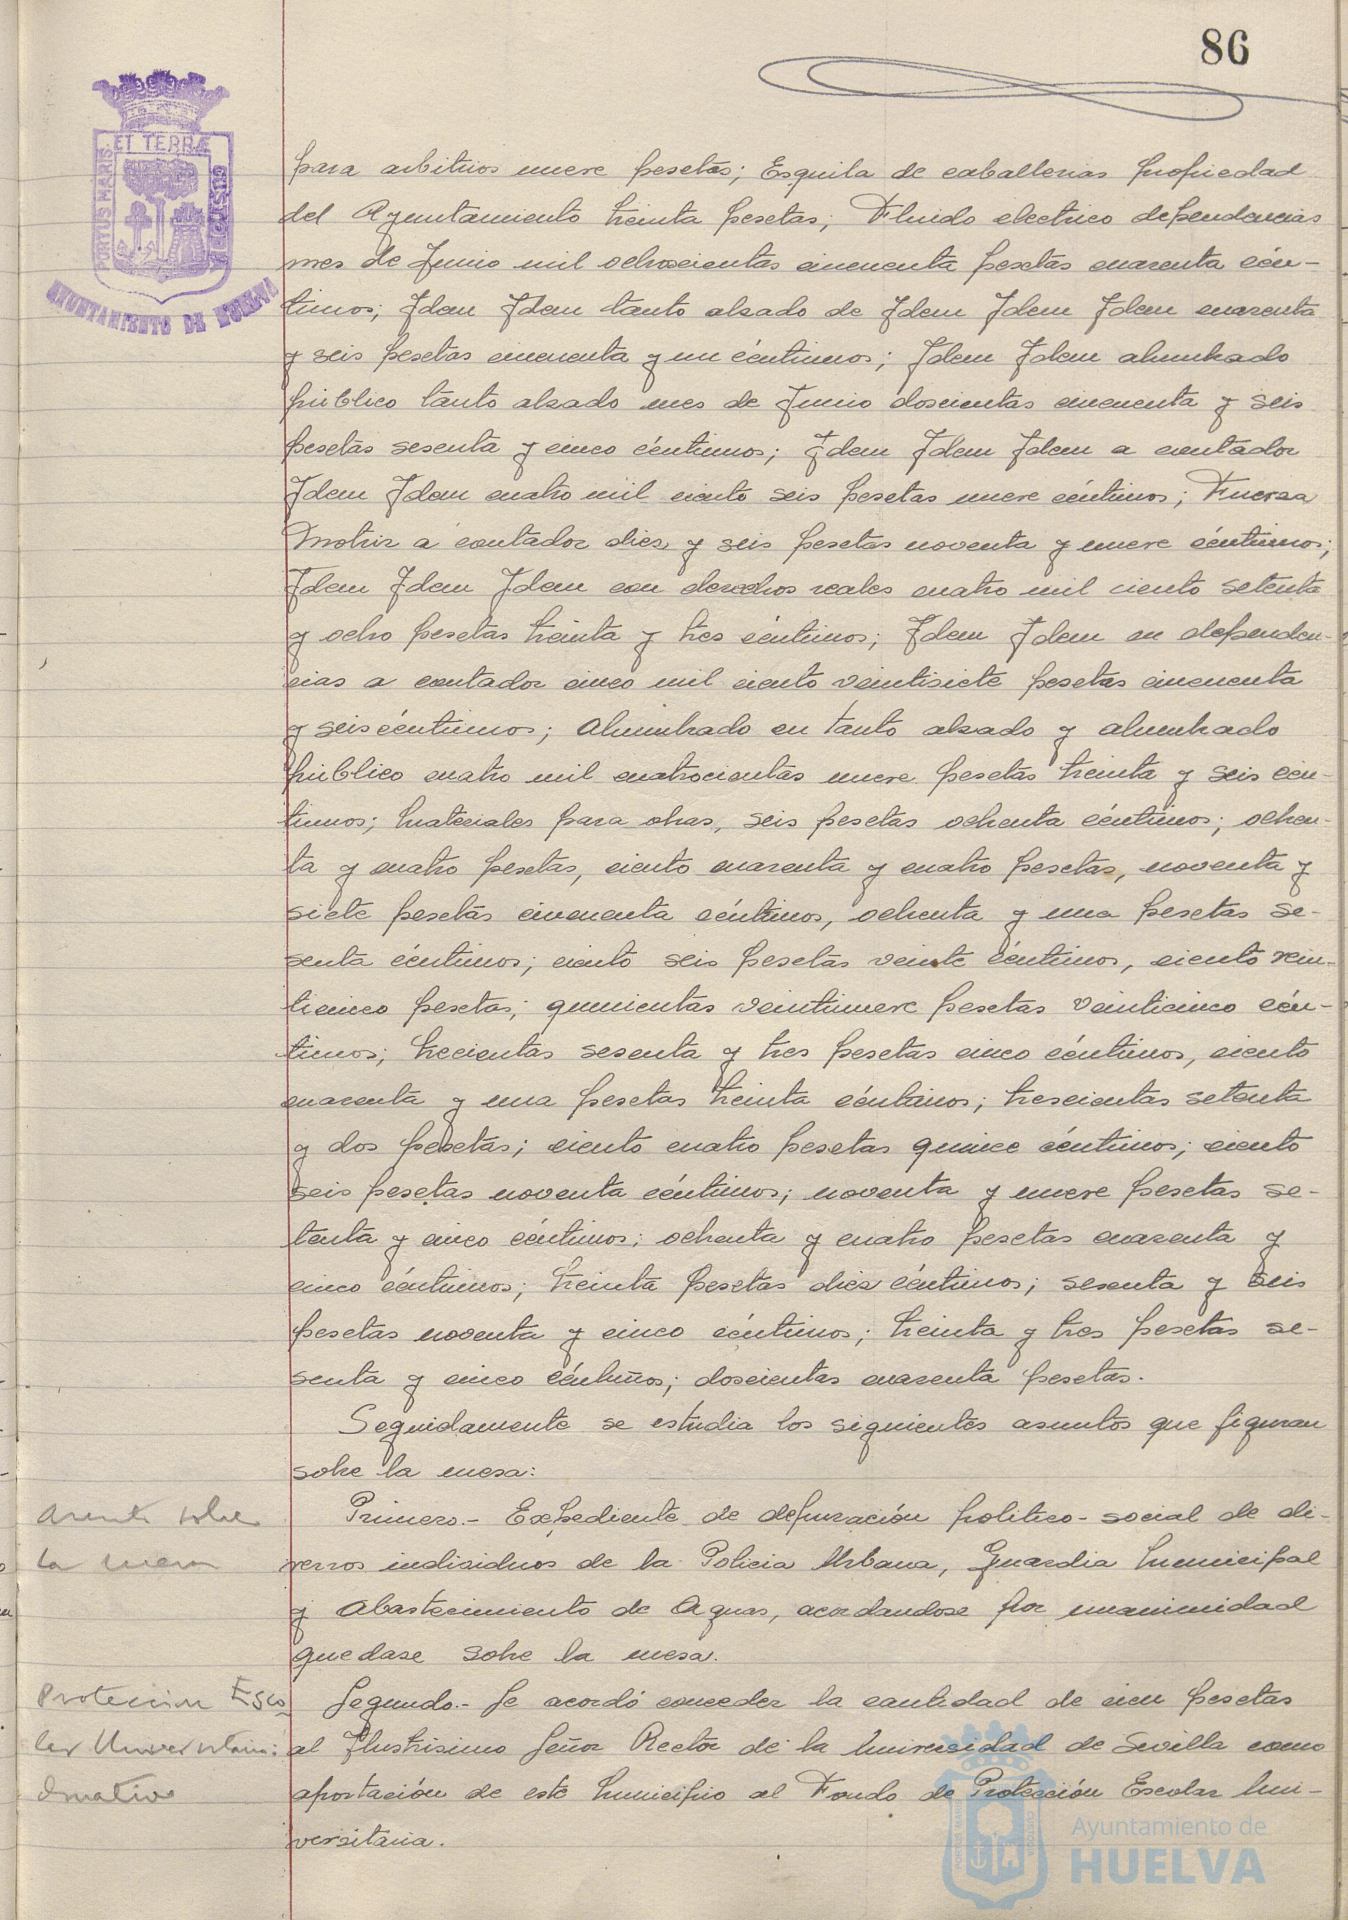 86
PORTUS MARIS ET TERRÆ CUSTODIA
AYUNTAMIENTO DE HUELVA
para arbitrios nueve pesetas; Esquila de caballerias propiedad
del Ayuntamiento treinta pesetas; Fluido electrico dependencias
mes de Junio mil ochocientas cincuenta pesetas cuarenta cén-
timos; Idem Idem tanto alzado de Idem Idem Idem cuarenta
y seis pesetas cincuenta y un céntimos; Idem Idem alumbrado
público tanto alzado mes de Junio doscientas cincuenta y seis
pesetas sesenta y cinco céntimos; Idem Idem Idem a contador
Idem Idem cuatro mil ciento seis pesetas nueve céntimos; Fuerza
Motriz a contador diez y seis pesetas noventa y nueve céntimos;
Idem Idem Idem con derechos reales cuatro mil ciento setenta
y ocho pesetas treinta y tres céntimos; Idem Idem en dependen-
cias a contador cinco mil ciento veintisiete pesetas cincuenta
y seis céntimos; alumbrado en tanto alzado y alumbrado
público cuatro mil cuatrocientas nueve pesetas treinta y seis cén-
timos; Materiales para obras, seis pesetas ochenta céntimos; ochen-
ta y cuatro pesetas, ciento cuarenta y cuatro pesetas, noventa y
siete pesetas cincuenta céntimos, ochenta y una pesetas se-
senta céntimos; ciento seis pesetas veinte céntimos, ciento vein-
ticinco pesetas; quinientas veintinueve pesetas veinticinco cén-
timos; trecientas sesenta y tres pesetas cinco céntimos, ciento
cuarenta y una pesetas treinta céntimos; trescientas setenta
y dos pesetas; ciento cuatro pesetas quince céntimos; ciento
seis pesetas noventa céntimos; noventa y nueve pesetas se-
tenta y cinco céntimos; ochenta y cuatro pesetas cuarenta y
cinco céntimos; treinta pesetas diez céntimos; sesenta y seis
pesetas noventa y cinco céntimos; treinta y tres pesetas se-
senta y cinco céntimos; doscientas cuarenta pesetas.
Seguidamente se estudia los siguientes asuntos que figuran
sobre la mesa:
Asunto sobre
la mesa
Primero.- Expediente de depuración politico-social de di-
versos individuos de la Policia Urbana, Guardia Municipal
y Abastecimiento de Aguas, acordandose por unanimidad
quedase sobre la mesa.
Protección Esco
lar Universitaria:
Donativo
Segundo.- Se acordó conceder la cantidad de cien pesetas
al Ilustrisimo Señor Rector de la Universidad de Sevilla como
aportación de este Municipio al Fondo de Protección Escolar Uni-
versitaria.
Ayuntamiento de
HUELVA